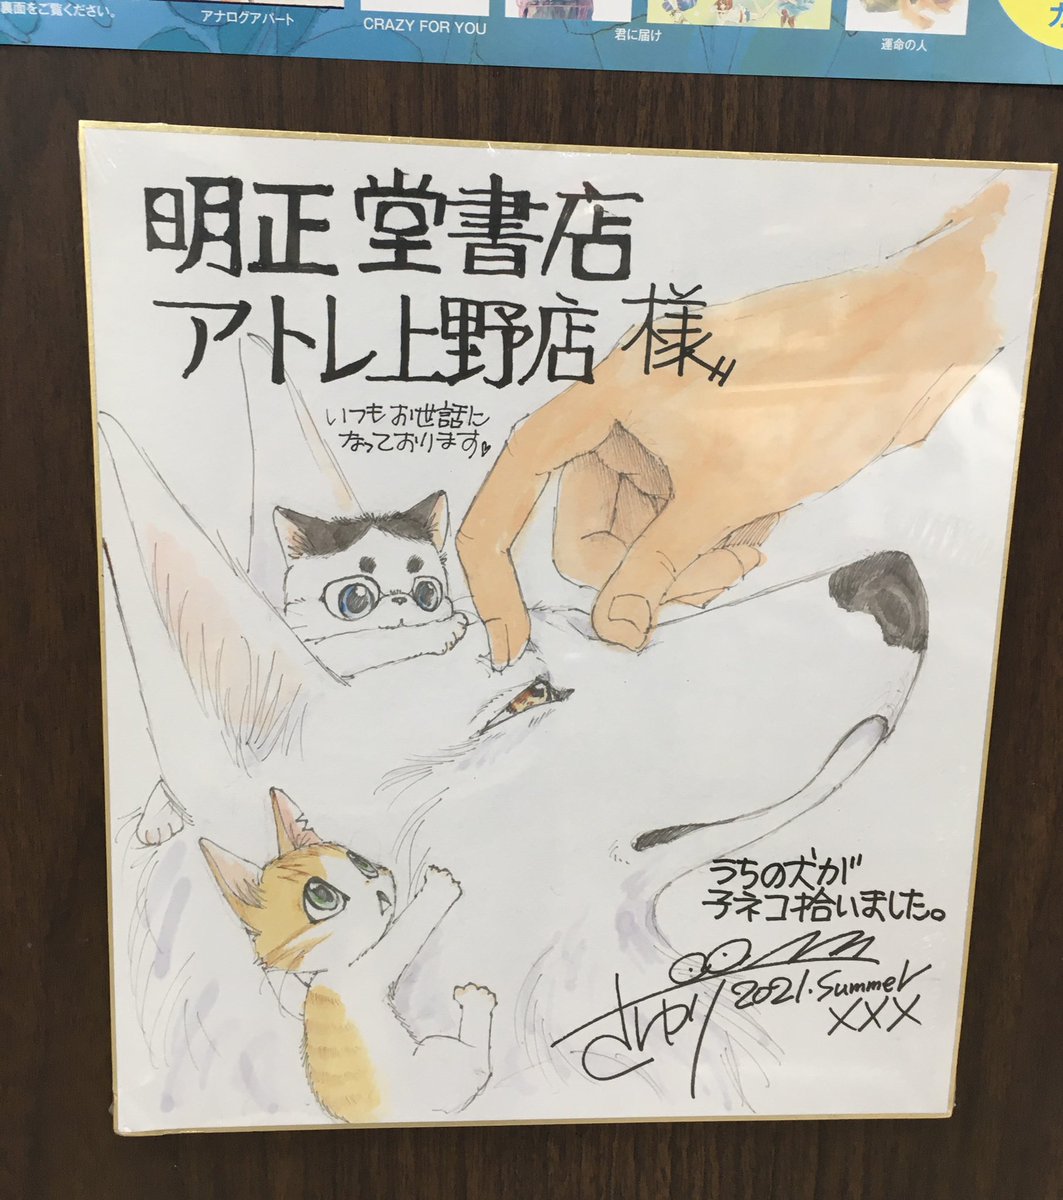 裏面をご覧ください。
アナログアパート
CRAZY FOR YOU
君に届け
運命の人
明正堂書店
アトレ上野店様
いつもお世話に
なっております♥
うちの犬が
子ネコ拾いました。
2021.Summer
XXX